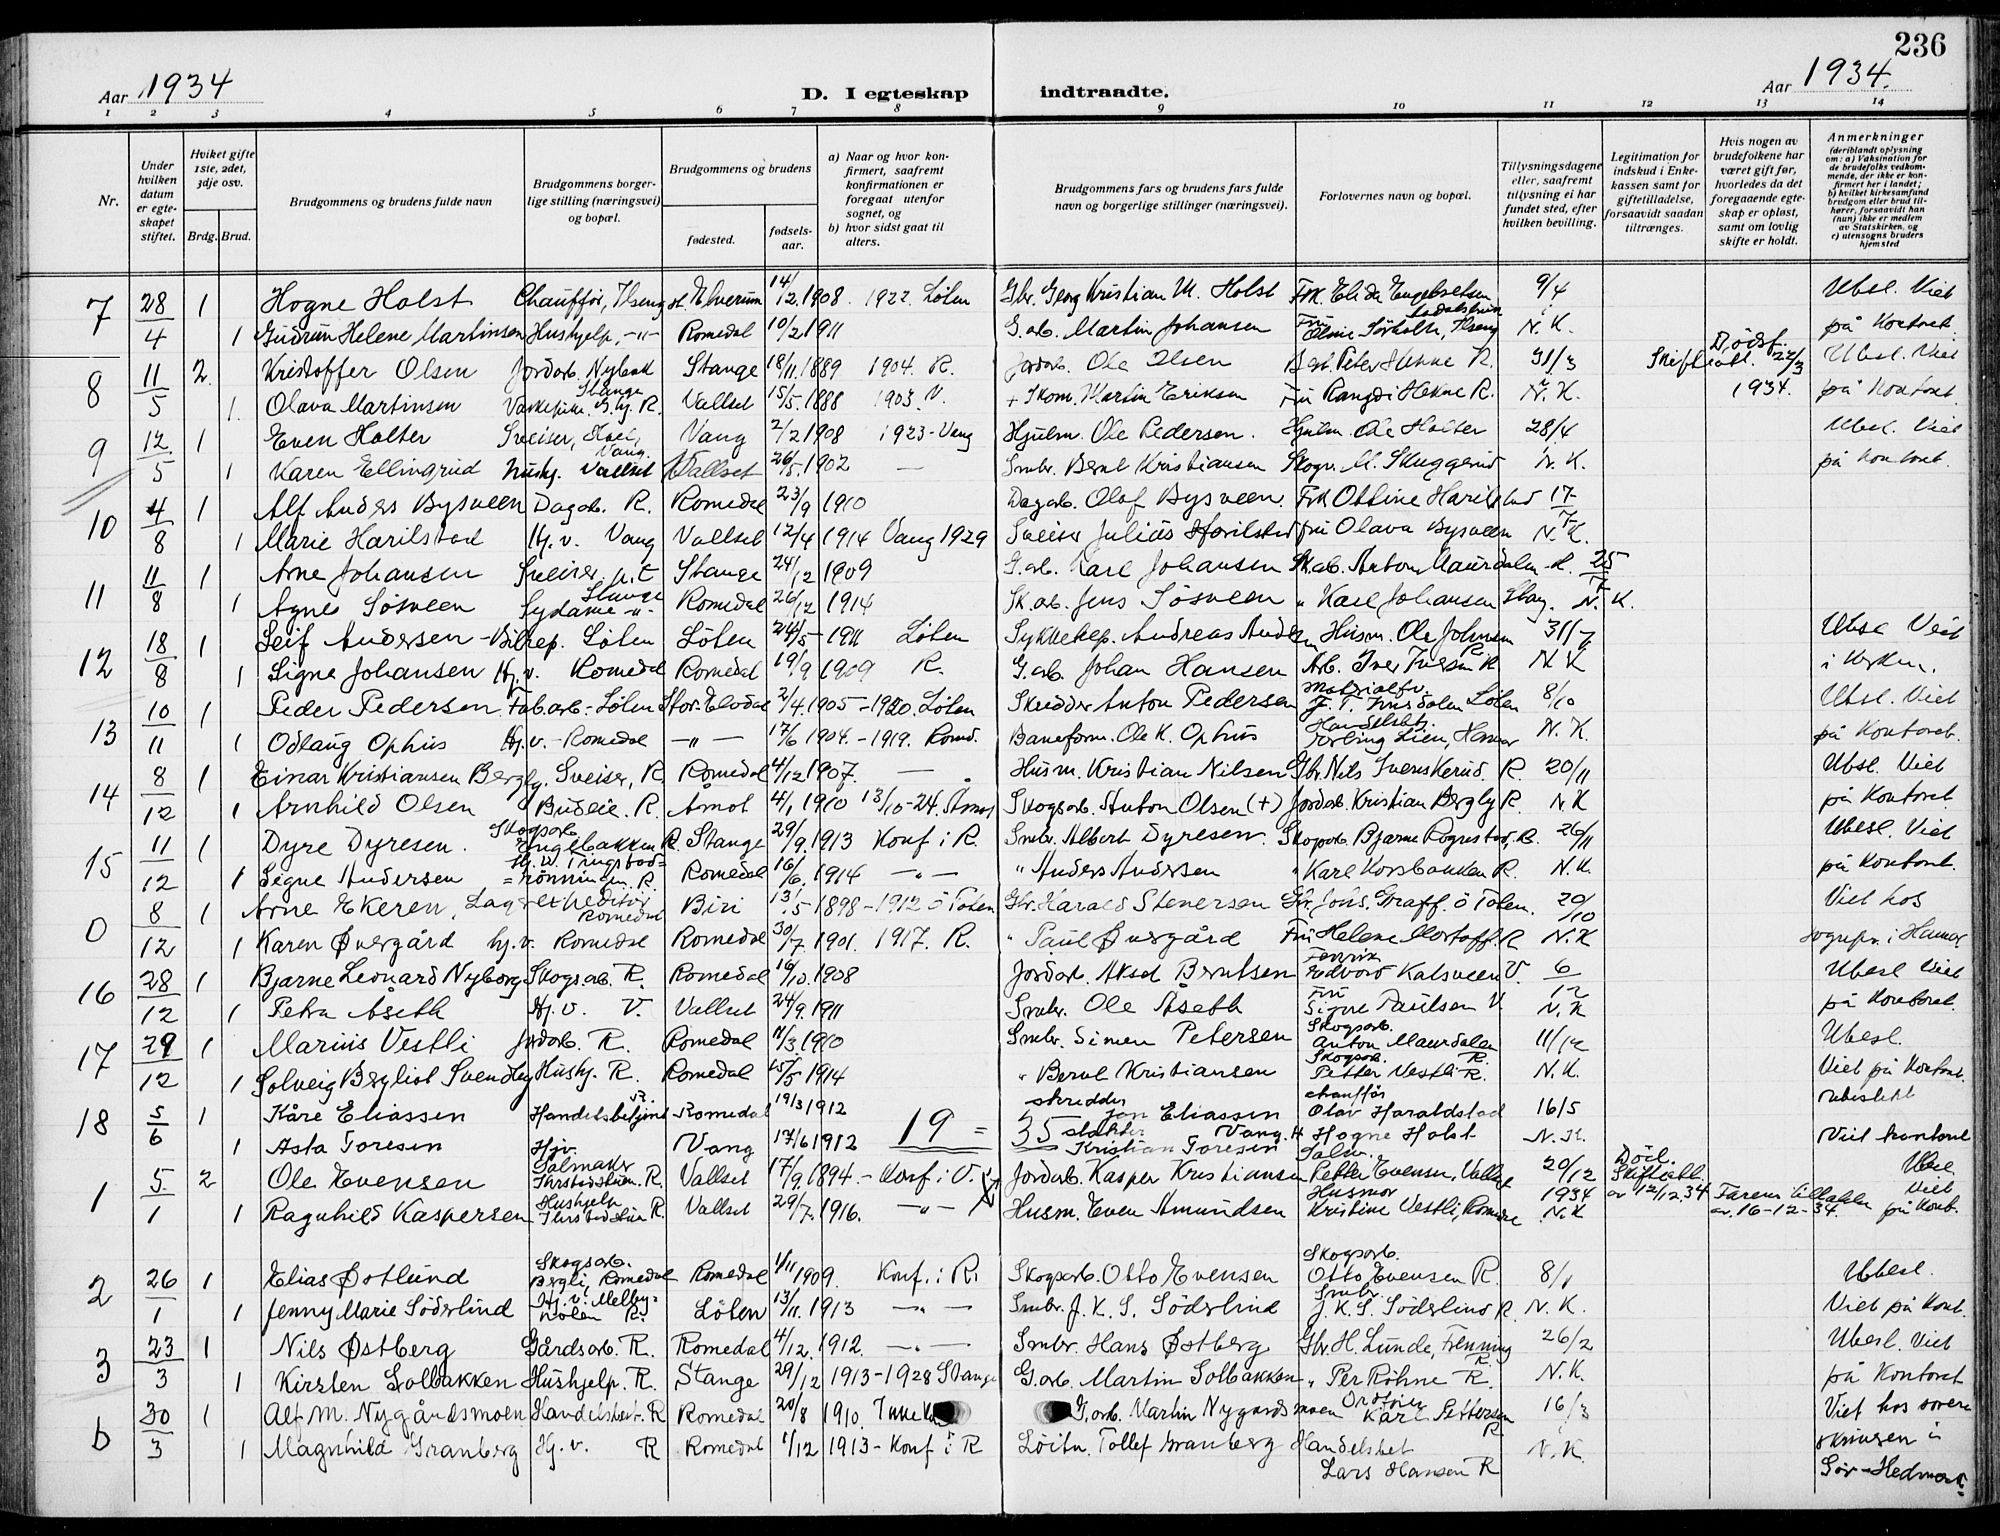 236
Aar 1934
D. I egteskap indtraadte.
Aar 1934.
1 2 3 4 5 6 7 8 9 10 11 12 13 14
Nr.
Under hvilken datum er egteskapet stiftet.
Hviket gifte 1ste, 2det, 3dje osv.
Brdg. Brud.
Brudgommens og brudens fulde navn
Brudgommens borgerlige stilling (næringsvei) og bopæl.
Brudgommens og brudens
fødested.
fødselsaar.
a) Naar og hvor konfirmert, saafremt konfirmationen er foregaat utenfor sognet, og
b) hvor sidst gaat til alters.
Brudgommens fars og brudens fars fulde navn og borgerlige stillinger (næringsvei).
Forlovernes navn og bopæl.
Tillysningsdagene eller, saafremt tillysning ei har fundet sted, efter hvilken bevilling.
Legitimation for indskud i Enkekassen samt for giftetilladelse, forsaavidt saadan tiltrænges.
Hvis nogen av brudefolkene har været gift før, hvorledes da det foregaaende egteskap er opløst, samt om lovlig skifte er holdt.
Anmerkninger (deriblandt oplysning om: a) Vaksination for de brudefolks vedkommende, der ikke er konfirmert her i landet; b) hvilket kirkesamfund brudgom eller brud tilhører, forsaavidt han (hun) ikke er medlem av Statskirken, og c) utensogns bruders hjemsted
7 28/4 1 Hogne Holst Chauffør, Ilseng st. Elverum 14/12.1908. 1922. Løten Gbr. Georg Kristian M. Holst Frk. Elida Engebretsen 9/4 Ubsl. Viet
1 Gudrun Helene Martinsen Hushjelp, -"- Romedal 10/2 1911 G.arb. Martin Johansen Fru Oline Sørholte, Ilseng N.K. på Kontoret.
8 11/5 2. Kristoffer Olsen Jordarb. Nybak Stange Stange 18/11.1889 1904. R. Jordarb. Ole Olsen Peter Hekne R. 31/3 Skifteatt. Dødsf. 22/3 1934. Ubsl. Viet
1. Olava Martinsen R. Vallset 15/5.1888 1903. V. + Skom. Martin Eriksen Fru Rangdi Hekne R. N.K. på Kontoret
9 12/5 1 Even Holter Sveiser, Hoel, Vang. Vang 2/2 1908 1923 - Vang Hjulm. Ole Pedersen. Hjulm. Ole Holter 28/4 Ubsl. Viet
1 Karen Ellingrud hushj. Vallset Vallset 26/5.1902 — Smbr. Bernt Kristiansen Skogv. M. Skuggerud N.K. på kontoret.
10 4/8 1 Alf Anders Bysveen Dagarb. R. Romedal 23/9 1910 Dagarb. Olof Bysveen. Frk Ottine Harilstad 17/7
1 Marie Harilstad Hj.v. Vang Vallset 12/4 1914 Vang 1929 Sveiser Julius Harilstad Fru Olava Bysveen N.K.
11 11/8 1 Arne Johansen Sveiser Stange Stange 24/12 1909 G.arb. Karl Johansen Sk.arb. Anton Maurdalen R. 25/7
1 Agnes Søsveen Sydame -"- Romedal 26/12 1914 Sk.arb. Jens Søsveen " Karl Johansen Stang. N.K.
12 18/8 1 Leif Andersen - Bilrep. Løten Løten 24/5 - 1911 Løten Andreas Andersen Husm. Ole Johnsen R. 31/7 Ubsl Viet
1 Signe Johansen Hj.v. Romedal Romedal 19/9 1909 R. G.arb. Johan Hansen Arb. Iver Iversen R N.K i kirken.
13 10/11 1 Peder Pedersen. Fab.arb. - Løten Stor-Elvdal 2/4.1905 - 1920. Løten Skredder Anton Pedersen Materialfv. Løten 8/10 Ubsl. Viet
1 Odlaug Ophus Hj.v. - Romedal -"- 17/6 1904. - 1919. Romd. Baneform. Ole K. Ophus Handelsbetj. Lien, Hamar N.K. på Kontoret.
14 8/12 1 Einar Kristiansen Bergly. Sveiser, R. Romedal 4/12 1907. — Husm. Kristian Nilsen Gbr. Nils Svenskerud. R. 20/11 Ubsl. Viet
1 Arnhild Olsen Budeie. R. Åmot 4/1 1910 13/10-24. Åmot Skogsarb. Anton Olsen (+) Jordarb. Kristian Bergly R. N.K på Kontoret
15 11/12 1 Dyre Dyresen. Skogsarb. Engelbakken R. Stange 29/9.1913 Konf i R. Smbr. Albert Dyresen. Skogsarb. Bjarne Rognstad, R. 26/11 Ubesl. Viet
1 Signe Andersen Hj.v. Tingstad=rønningen. R. Romedal 16/6.1914 -"- " Anders Andersen " Karl Korsbakken R. N.K. på Kontoret.
0 8/12 1 Arne Ekeren, Lagerexpeditør Romedal Biri 13/5 1898 - 1912 ö Toten Gbr. Harald Stenersen Gbr. Johs. Graff. ö Toten. 20/10 Viet hos
1 Karen Øvergård hj.v. Romedal Romedal 30/7.1901. 1917. R. " Paul Øvergård Fru Helene R N.K sogrepr. i Hamar
16 28/12 1 Bjarne Leonard Nyborg Skogsarb. R. Romedal 16/10.1908 Jordarb. Aksel Berntsen Edvard Kalsveen V. 6/12 Ubesl Viet
1 Petra Åseth Hj.v. V. Vallset 24/9.1911 Smbr. Ole Åseth Fru Signe Paulsen V. N.K på Kontoret.
17 29/12 1 Marius Vestli Jordarb. R. Romedal 1910 Smbr. Simen Petersen Skogsarb. Anton Maurdalen R. 11/12 Ubesl.
1 Solveig Bergliot Svendby Hushj. R. Romedal 15/5 1914 " Bernt Kristiansen Skogsarb. Petter Vestli R. N.K. Viet på Kontoret.
18 5/6 1 Kåre Eliassen Handelsbetjent R. Romedal 19/3 1912 skredder Jon Eliassen chauffør Olav Haraldstad 16/5 ubeslekt
1 Asta Toresen Hjv. Vang 17/6 1912 19 = 35 slakter Vang. H Kristian Toresen Hogne Holst N.K. Viet kontoret
1 5/1 2 Ole Evensen Salmaker R. Vallset 17/9.1894. - Konf. i V. Jordarb. Kasper Kristiansen Salm. Petter Evensen, Vallset 20/12 1934 Død. Skifteatt. av 12/12.34 Ubesl.
1 Ragnhild Kaspersen Hushjelp R. Vallset 29/7.1916. -"- Husm. Even Amundsen Husmor Kristine Vestli, Romdre N.K Farens tilladelse av. 16-12-34. Viet på Kont.
2 26/1 1 Elias Østlund Skogsarb. Bergli, Romedal Romedal 1/11 1909. Konf. i R. Skogsarb. Otto Evensen Skogsarb. Otto Evensen R. 8/1 Ubesl.
1 Jenny Marie Söderlind Hj.v. Melby - Løten R. Löten 13/11.1913 -"- Smbr. J.K.S. Söderlind Smbr. J.K.S. Söderlind R. N.K. Viet på Kont.
3 23/3 1 Nils Østberg Gårdsarb. R. Romedal 4/12.1912. -"- Smbr. Hans Østberg Gbr. H. Lunde, Frenning R. 26/2 Ubesl. Viet
1 Kirsten Solbakken Hushjelp. R. Stange 29/12 1913 - 1928 Stange G.arb. Martin Solbakken " Per Röhne R. N.K. på Kontoret
b 30/3 1 Alf M. Nygårdsmoen Handelsbest. R Romedal 20/8 1910. G.arb. Martin Nygardsmoen Karl Pettersen R. 16/3 Viet hos soren
1 Magnhild Granberg Hj.v. R Romedal 1/12 1913 - Konf i R Löitn. Tollef Granberg Handelsbet Lars Hansen R N.K. skriveren i
Sör-Hedmark